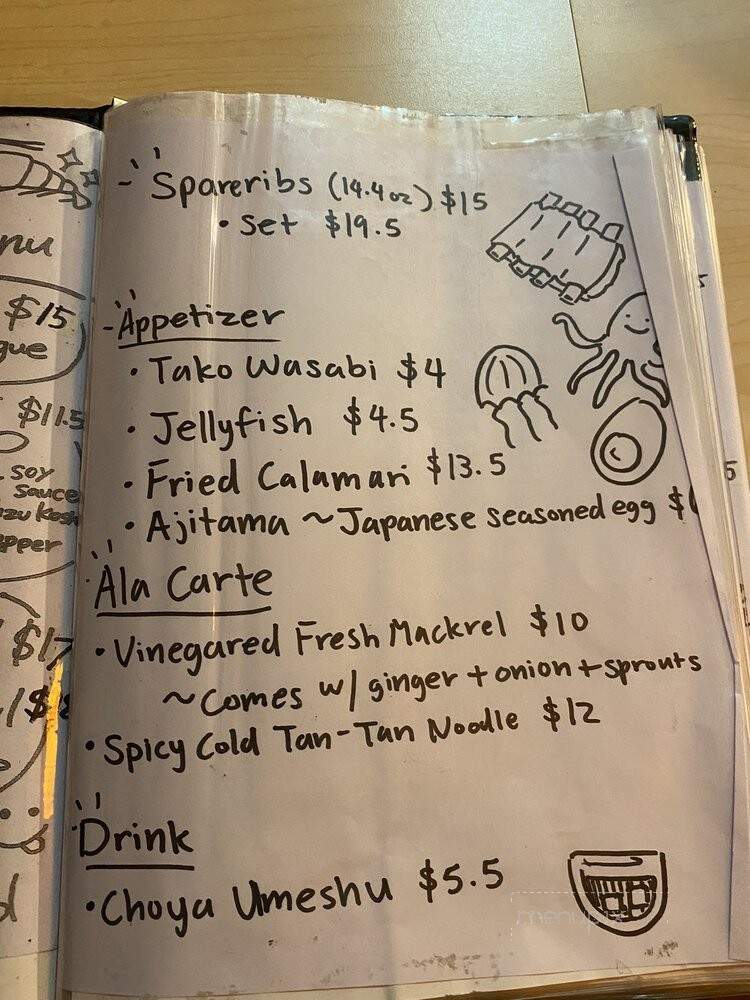 Spareribs (14.4oz) $15
• Set $19.5
Appetizer
• Tako Wasabi $4
• Jellyfish $4.5
• Fried Calamari $13.5
• Ajitama ~Japanese seasoned egg $
Ala Carte
• Vinegared Fresh Mackrel $10
~Comes w/ ginger + onion + sprouts
• Spicy Cold Tan-Tan Noodle $12
Drink
• Choya Umeshu $5.5
menupix
nu
$15
gue
$11.5
soy
sauce
zu kosh
pper
$17